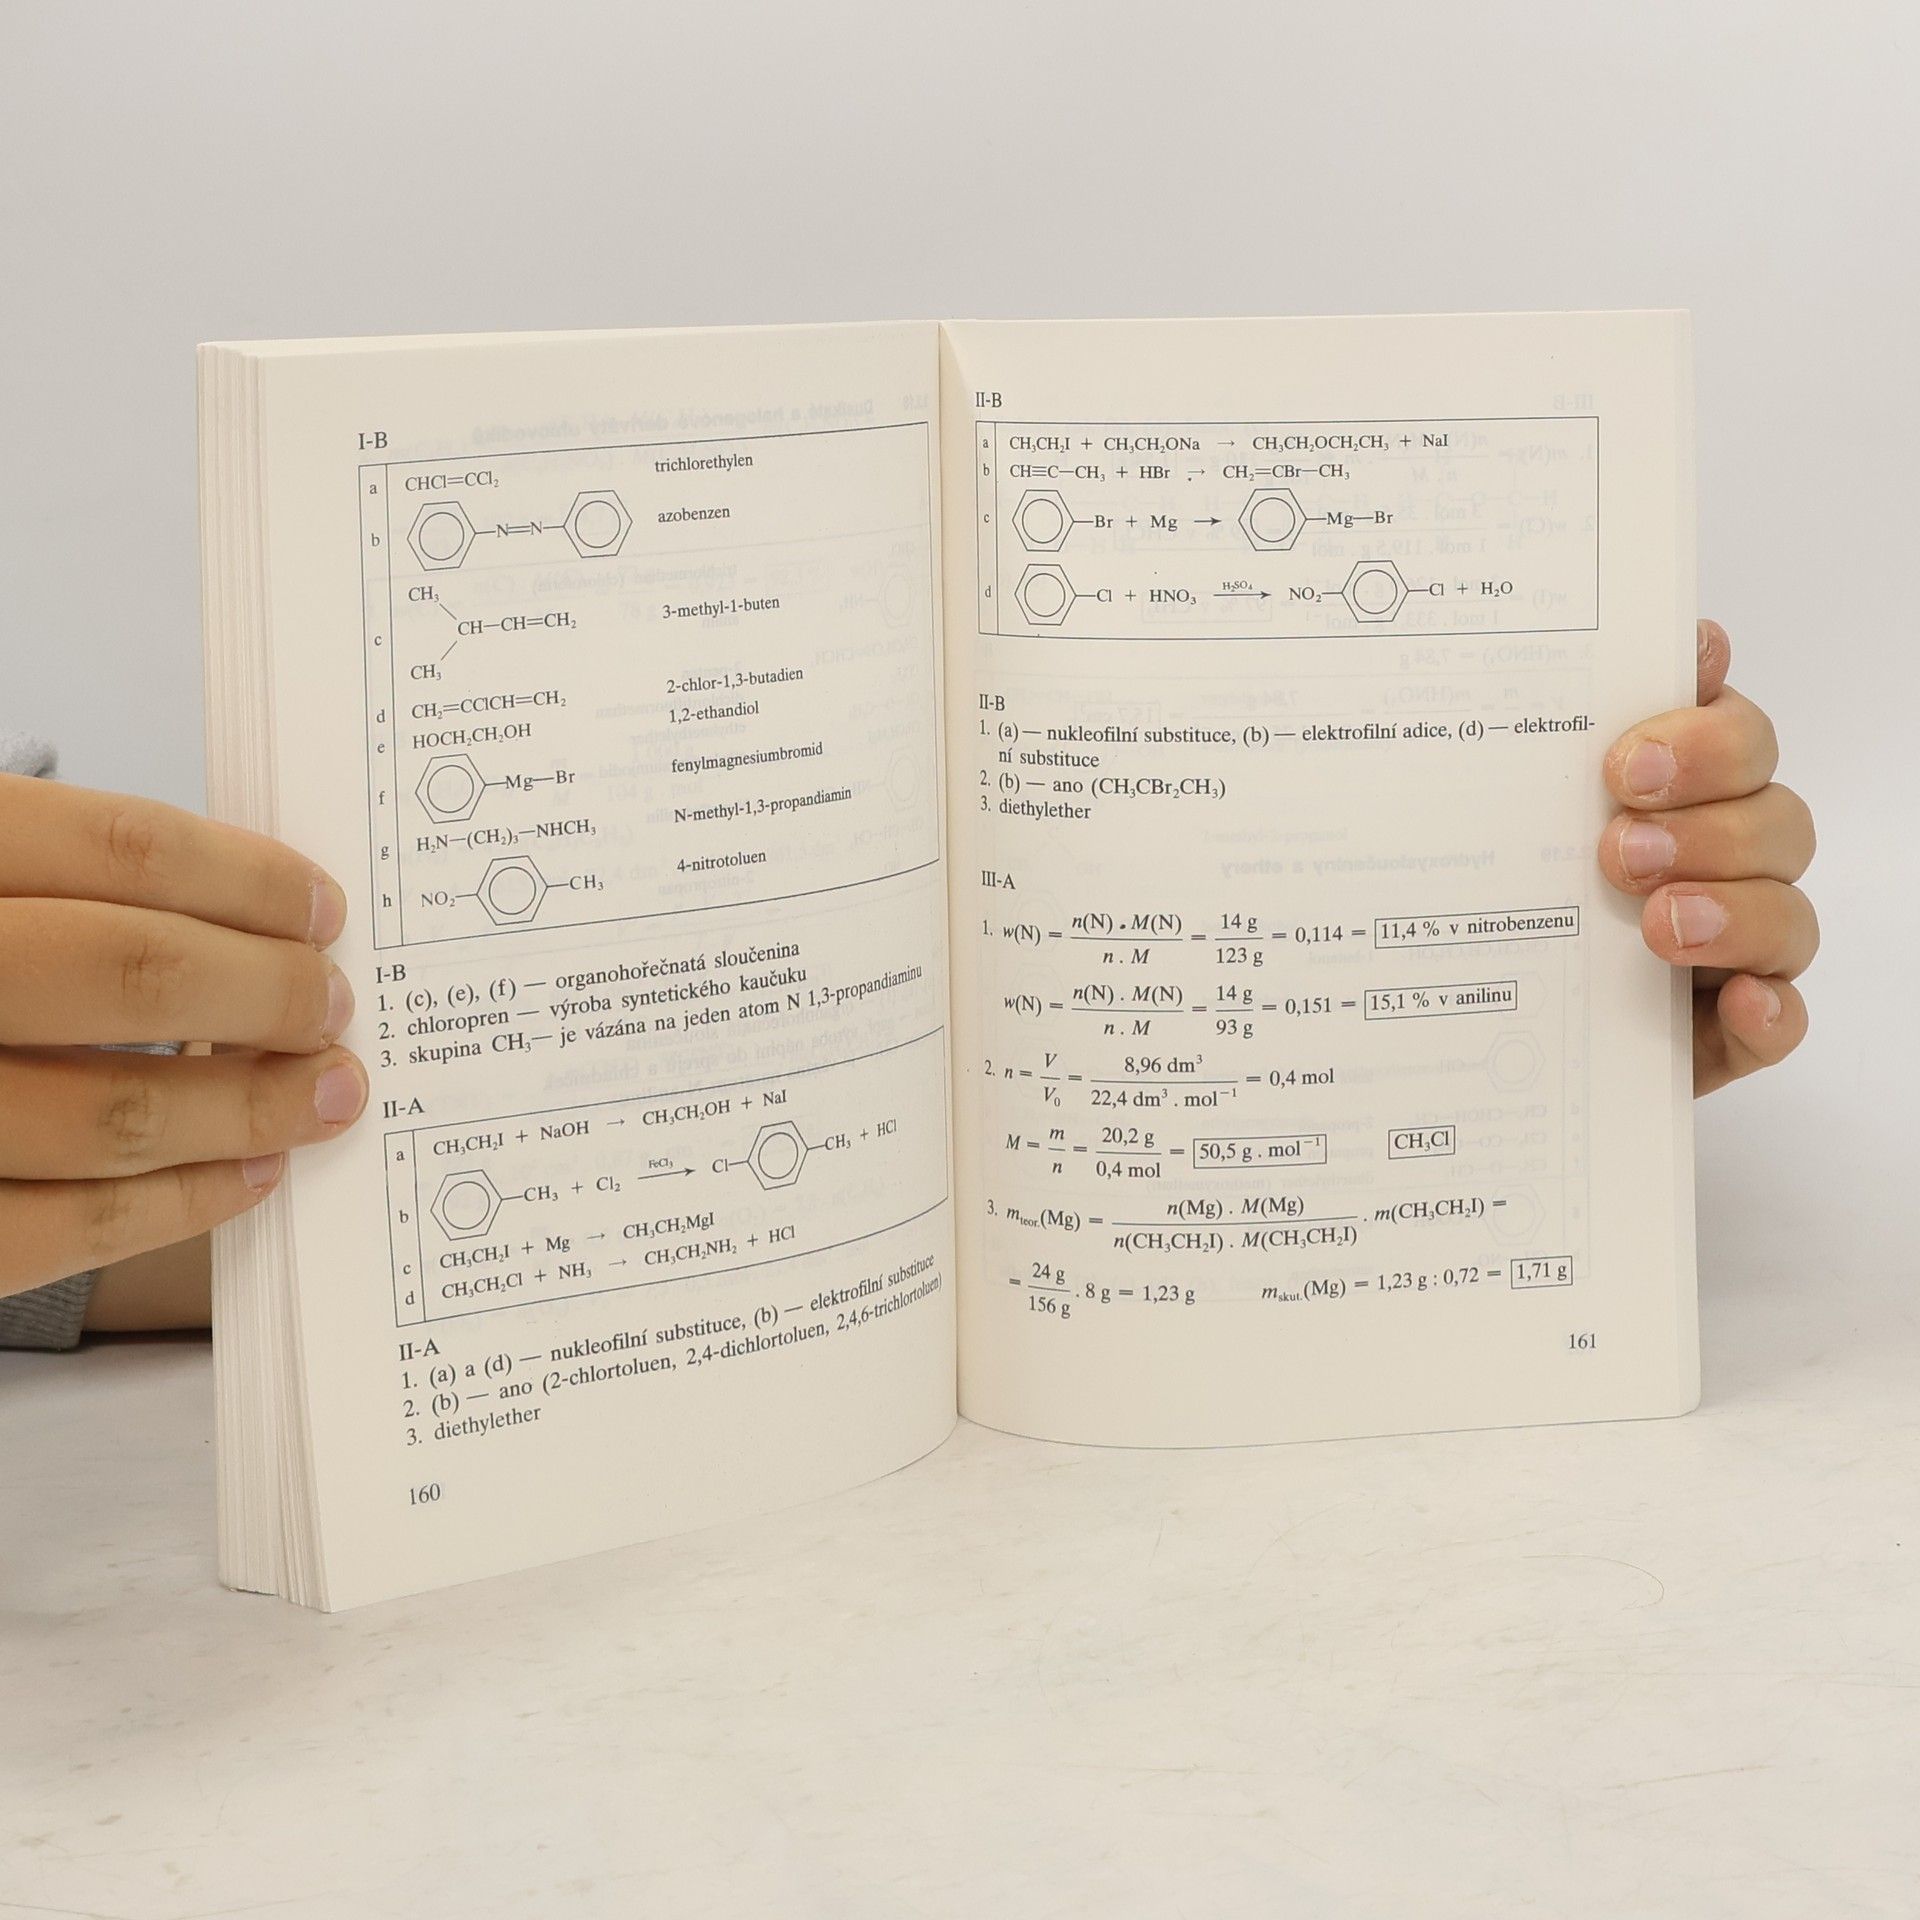 I-B
a CHCl=CCl₂ trichlorethylen
b —N=N— azobenzen
CH₃
c CH—CH=CH₂ 3-methyl-1-buten
CH₃
d CH₂=CClCH=CH₂ 2-chlor-1,3-butadien
e HOCH₂CH₂OH 1,2-ethandiol
f —Mg—Br fenylmagnesiumbromid
g H₂N—(CH₂)₃—NHCH₃ N-methyl-1,3-propandiamin
h NO₂— —CH₃ 4-nitrotoluen
I-B
1. (c), (e), (f) — organohořečnatá sloučenina
2. chloropren — výroba syntetického kaučuku
3. skupina CH₃— je vázána na jeden atom N 1,3-propandiaminu
II-A
a CH₃CH₂I + NaOH → CH₃CH₂OH + NaI
b —CH₃ + Cl₂ FeCl₃ → Cl— —CH₃ + HCl
c CH₃CH₂I + Mg → CH₃CH₂MgI
d CH₃CH₂Cl + NH₃ → CH₃CH₂NH₂ + HCl
II-A
1. (a) a (d) — nukleofilní substituce, (b) — elektrofilní substituce
2. (b) — ano (2-chlortoluen, 2,4-dichlortoluen, 2,4,6-trichlortoluen)
3. diethylether
160
II-B
a CH₃CH₂I + CH₃CH₂ONa → CH₃CH₂OCH₂CH₃ + NaI
b CH≡C—CH₃ + HBr → CH₂=CBr—CH₃
c —Br + Mg → —Mg—Br
d —Cl + HNO₃ H₂SO₄ → NO₂— —Cl + H₂O
II-B
1. (a) — nukleofilní substituce, (b) — elektrofilní adice, (d) — elektrofil-
ní substituce
2. (b) — ano (CH₃CBr₂CH₃)
3. diethylether
III-A
1. w(N) = n(N) . M(N) / n . M = 14 g / 123 g = 0,114 = 11,4 % v nitrobenzenu
w(N) = n(N) . M(N) / n . M = 14 g / 93 g = 0,151 = 15,1 % v anilinu
2. n = V / V₀ = 8,96 dm³ / 22,4 dm³ . mol⁻¹ = 0,4 mol
M = m / n = 20,2 g / 0,4 mol = 50,5 g . mol⁻¹ CH₃Cl
3. mteor.(Mg) = n(Mg) . M(Mg) / n(CH₃CH₂I) . M(CH₃CH₂I) . m(CH₃CH₂I) =
= 24 g / 156 g . 8 g = 1,23 g mskut.(Mg) = 1,23 g : 0,72 = 1,71 g
161